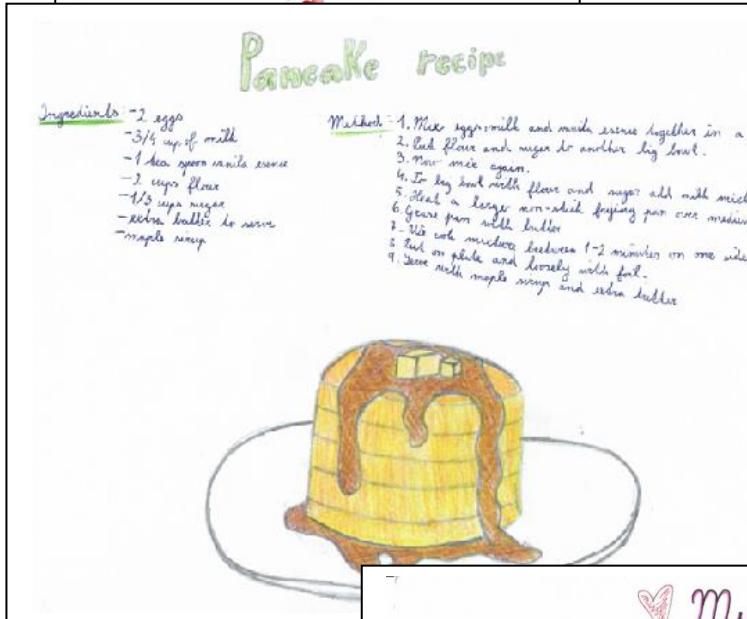 Pancake recipe
Ingredients: -2 eggs
-3/4 cup of milk
-1 tea spoon vanila esence
-2 cups flour
-1/3 cups sugar
-extra butter to serve
-maple sirup
Method:- 1. Mix eggs, milk and vanila esence together in a
2. Put flour and sugar to another big bowl.
3. Now mix again.
4. In big bowl with flour and sugar add milk
5. Heat a larger non-stick frying pan over medium
6. Grase pan with butter
7. mixture beetween 1-2 minutes on one side
8. Put on plate and loosely with foil.
9. Serve with maple sirup and extra butter